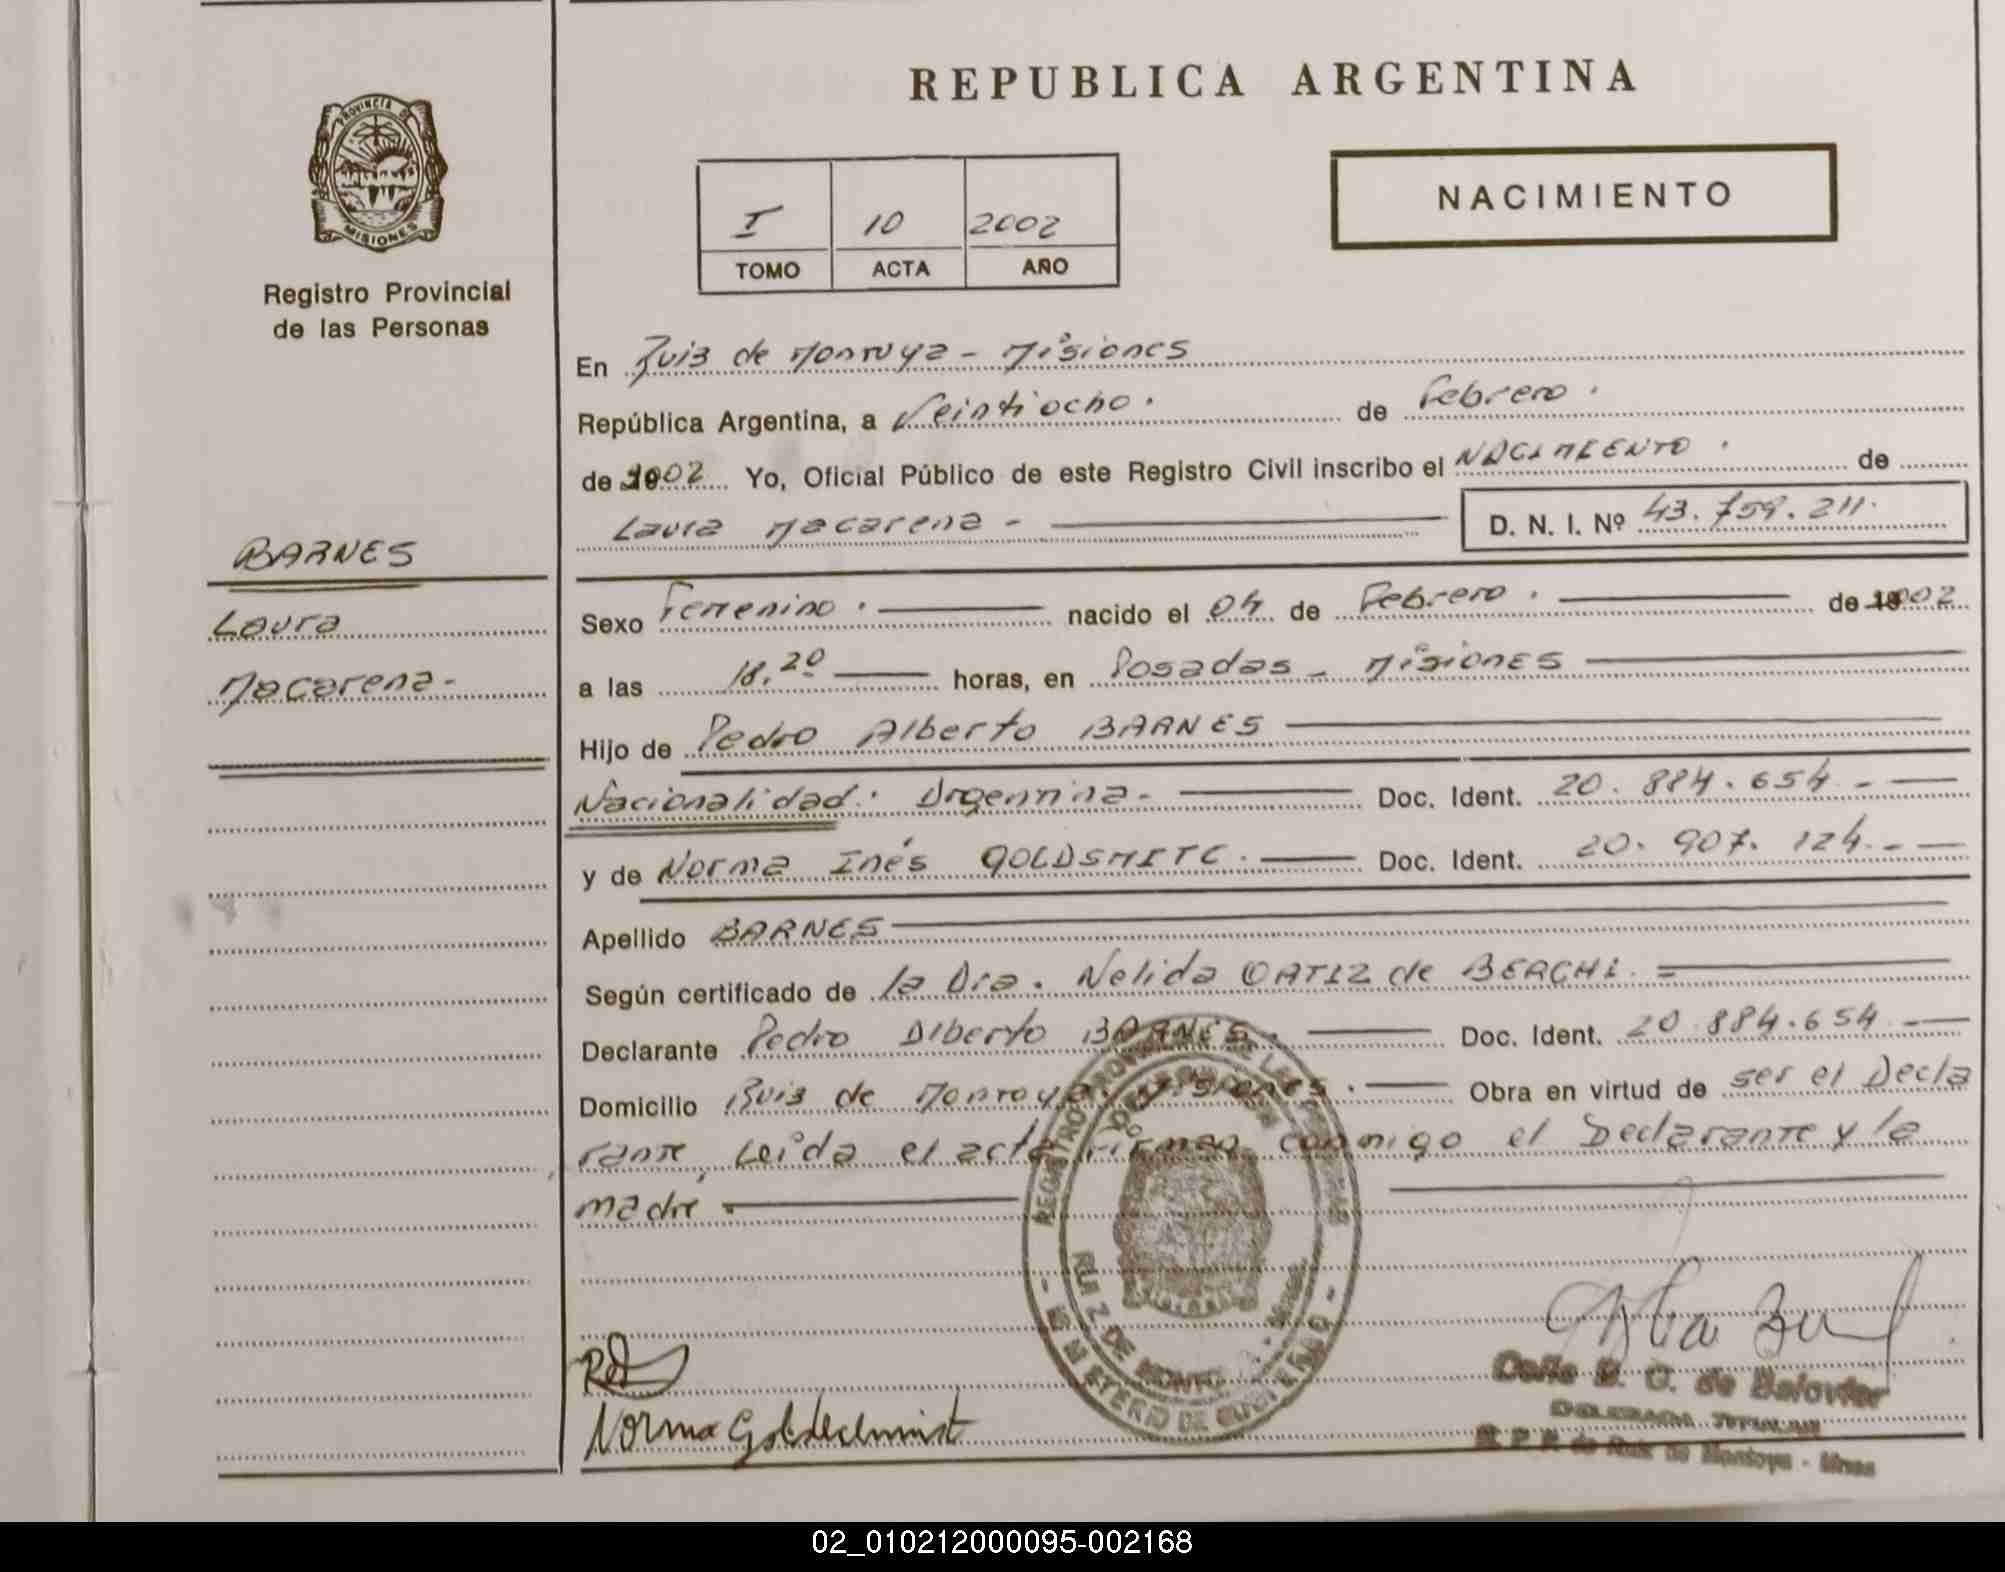 REPUBLICA ARGENTINA
PROVINCIA DE
MISIONES
Registro Provincial
de las Personas
NACIMIENTO
I 10 2002
TOMO ACTA AÑO
En Ruiz de Montoya - Misiones
República Argentina, a Veintiocho. de Febrero.
de 2002 Yo, Oficial Público de este Registro Civil inscribo el NACIMIENTO. de
Laura Macarena - D. N. I. Nº 43.759.211.
BARNES
Laura
Macarena-
Sexo Femenino. nacido el 04 de Febrero. de 2002
a las 18,20 horas, en Posadas - Misiones
Hijo de Pedro Alberto BARNES
Nacionalidad: Argentina- Doc. Ident. 20.884.654.-
y de Norma Inés GOLDSMITC. Doc. Ident. 20.907.124.-
Apellido BARNES
Según certificado de la Dra. Nelida ORTIZ de BERCHI.=
Declarante Pedro Alberto BARNES. Doc. Ident. 20.884.654.-
Domicilio Ruiz de Montoya. Misiones. Obra en virtud de ser el Decla
rante, Leida el acta firman conmigo el Declarante y la
madre.
REGISTRO PROVINCIAL DE LAS PERSONAS
RUIZ DE MONTOYA - Misiones
- MINISTERIO DE GOBIERNO -
Norma Goldschmit
DELEGADA TITULAR
R. P. P. de Ruiz de Montoya - Mnes
02_010212000095-002168